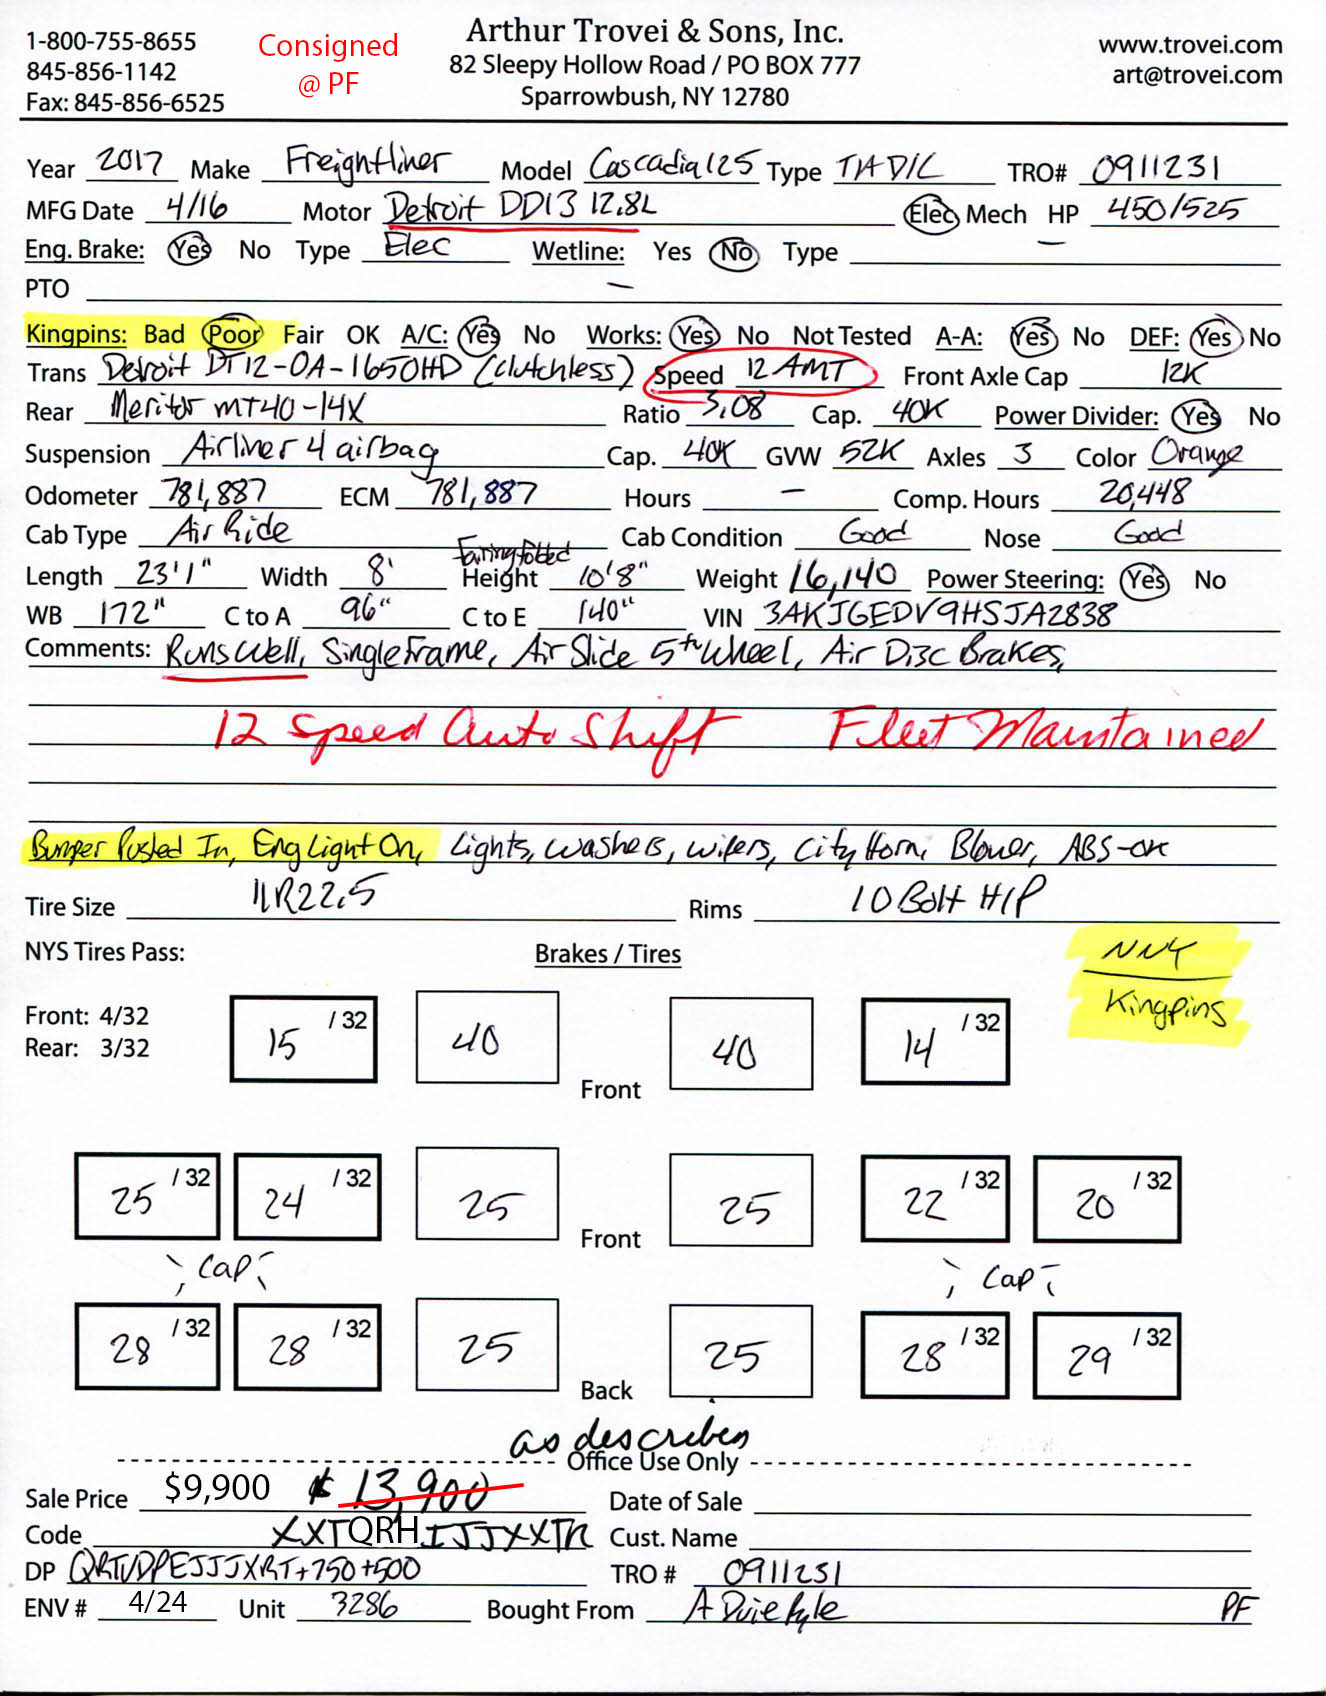 1-800-755-8655
845-856-1142
Fax: 845-856-6525
Consigned
@ PF
Arthur Trovei & Sons, Inc.
82 Sleepy Hollow Road / PO BOX 777
Sparrowbush, NY 12780
www.trovei.com
art@trovei.com
Year 2017 Make Freightliner Model Cascadia 125 Type TADC TRO# 0911231
MFG Date 4/16 Motor Detroit DD13 12.8L Elec Mech HP 450/525
Eng. Brake: Yes No Type Elec Wetline: Yes No Type —
PTO —
Kingpins: Bad Poor Fair OK A/C: Yes No Works: Yes No Not Tested A-A: Yes No DEF: Yes No
Trans Detroit DT12-OA-1650HD (clutchless) Speed 12 AMT Front Axle Cap 12K
Rear Meritor MT40-14X Ratio 3.08 Cap. 40K Power Divider: Yes No
Suspension Airliner 4 airbag Cap. 40K GVW 52K Axles 3 Color Orange
Odometer 781,887 ECM 781,887 Hours — Comp. Hours 20,448
Cab Type Air Ride Cab Condition Good Nose Good
Fairing folded
Length 23'1" Width 8' Height 10'8" Weight 16,140 Power Steering: Yes No
WB 172" C to A 96" C to E 140" VIN 3AKJGEDV9HSJA2838
Comments: Runs Well, Single Frame, Air Slide 5th Wheel, Air Disc Brakes,
12 Speed Auto Shift Fleet Maintained
Bumper Pushed In, Eng Light On, Lights, washers, wipers, City Horn, Blower, ABS-ok
Tire Size 11R22.5 Rims 10 Bolt H/P
NYS Tires Pass: Brakes / Tires
NNY
Kingpins
Front: 4/32
Rear: 3/32
15 /32 40 Front 40 14 /32
25 /32 24 /32 25 Front 25 22 /32 20 /32
Cap Cap
28 /32 28 /32 25 Back 25 28 /32 29 /32
as described
Office Use Only
Sale Price $9,900 $13,900 Date of Sale
Code XXTQRHIJJXXTR Cust. Name
DP TRO # 0911231
ENV # 4/24 Unit 3286 Bought From PF